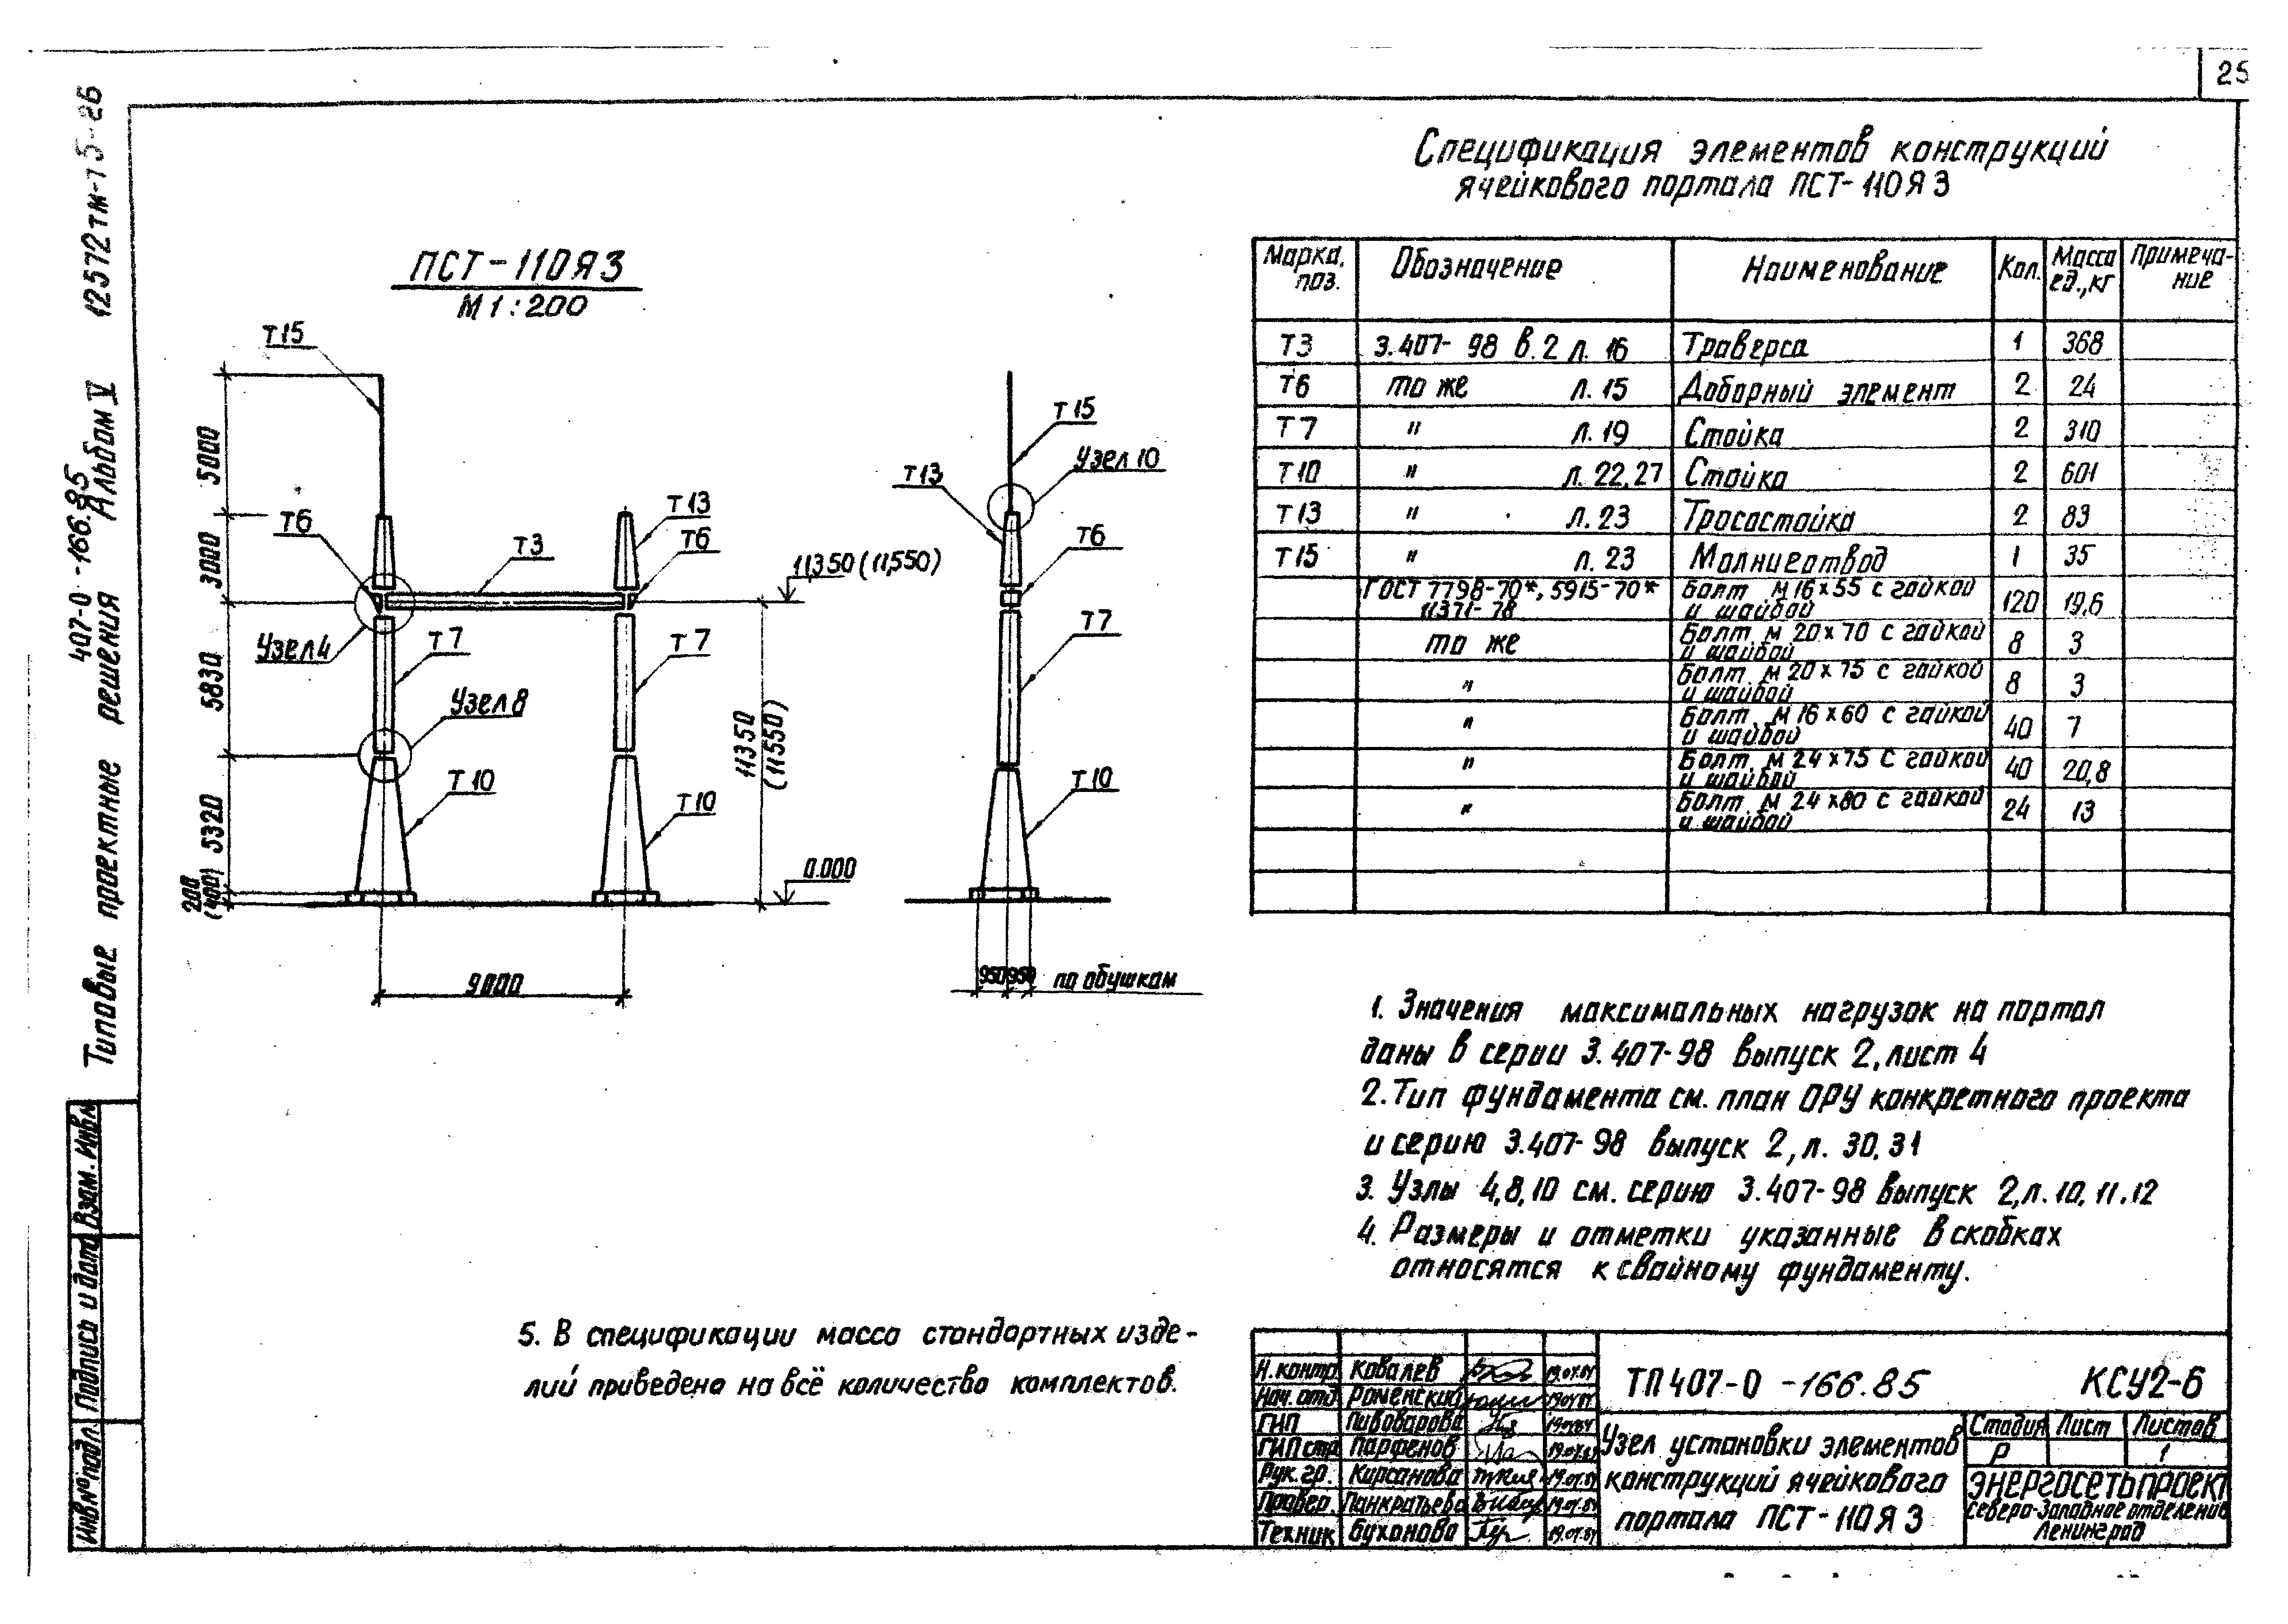 25
Типовые проектные решения 407-0-166.85 Альбом V 12572тм-т5-26
Взам. Инв.№
Подпись и дата
Инв№подл.
ПСТ-110Я3
М 1:200
Т15
Т6
Т3
Т13
Т6
Узел 4
Т7
Т7
Узел 8
Т10
Т10
5000
3000
5830
5320
200
(400)
9000
11350
(11550)
11,350 (11,550)
0.000
Т15
Узел 10
Т13
Т6
Т7
Т10
950 950 по обушкам
Спецификация элементов конструкций
ячейкового портала ПСТ-110Я3
Марка, поз. Обозначение Наименование Кол. Масса ед.,кг Примечание
Т3 3.407-98 в.2 л. 16 Траверса 1 368
Т6 то же л.15 Доборный элемент 2 24
Т7 " л.19 Стойка 2 310
Т10 " л.22,27 Стойка 2 601
Т13 " л.23 Тросостойка 2 83
Т15 " л.23 Молниеотвод 1 35
ГОСТ 7798-70*, 5915-70* 11371-78 Болт М16х55 с гайкой и шайбой 120 19,6
то же Болт М 20х70 с гайкой и шайбой 8 3
" Болт М20х75 с гайкой и шайбой 8 3
" Болт М16х60 с гайкой и шайбой 40 7
" Болт М24х75 с гайкой и шайбой 40 20,8
" Болт М 24х80 с гайкой и шайбой 24 13
1. Значения максимальных нагрузок на портал
даны в серии 3.407-98 выпуск 2, лист 4
2. Тип фундамента см. план ОРУ конкретного проекта
и серию 3.407-98 выпуск 2, л. 30,31
3. Узлы 4,8,10 см. серию 3.407-98 выпуск 2, л. 10, 11.12
4. Размеры и отметки указанные в скобках
относятся к свайному фундаменту.
5. В спецификации масса стандартных изде-
лий приведена на всё количество комплектов.
Н.контр. Ковалев
Нач. отд. Роменский
ГИП Пивоварова
ГИП стр. Парфенов
Рук. гр. Кирсанова
Провер. Панкратьева
Техник Буханова
ТП 407-0-166.85 КСУ2-6
Узел установки элементов
конструкций ячейкового
портала ПСТ-110Я3
Стадия Лист Листов
Р 1
ЭНЕРГОСЕТЬПРОЕКТ
Северо-Западное отделение
Ленинград